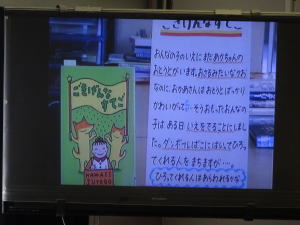 ごきげんなすてご
おんなの子のいえに、まだあかちゃんの
おとうとがいます。おさるみたいなかお
なのに、おかあさんは、おとうとばっかり
かわいがって… そうおもったおんなの
子は、ある日、いえをでることにしまし
た。ダンボールばこにはいって、ひろっ
てくれる人をまちますが……
ひろってくれる人はあらわれるかな
ごきげんな
すてご